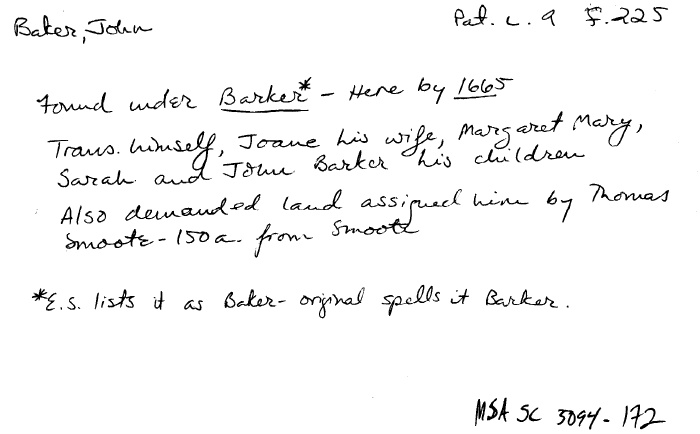 Baker, John
Pat. L. 9 F.225
Found under Barker* - Here by 1665
Trans. himself, Joane his wife, Margaret Mary,
Sarah and John Barker his children
Also demanded land assigned him by Thomas
Smoote - 150 a. from Smoote
*E.S. lists it as Baker- original spells it Barker.
MSA SC 3094-172